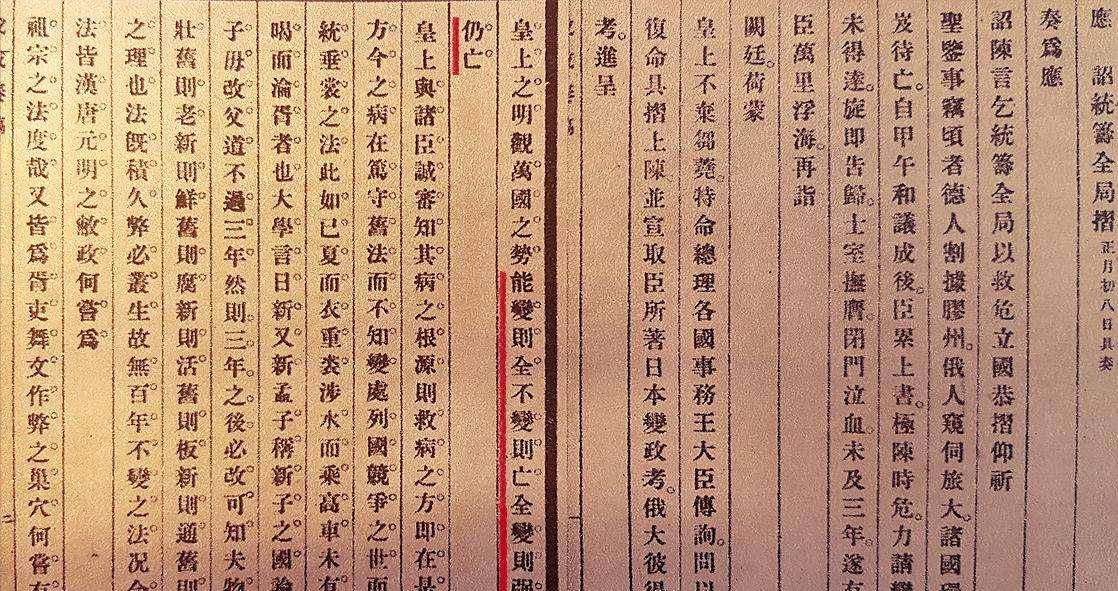 應　詔統籌全局摺正月初八日具奏
奏爲應
詔陳言乞統籌全局以救危立國恭摺仰祈
聖鑒事竊頃者德人割據膠州。俄人窺伺旅大。諸國環
岌待亡。自甲午和議成後。臣累上書。極陳時危。力請變
未得達。旋即告歸。土室撫膺。閉門泣血。未及三年。遂有
臣萬里浮海。再詣
闕廷。荷蒙
皇上不棄芻蕘。特命總理各國事務王大臣傳詢。問以
復命具摺上陳並宣取臣所著日本變政考。俄大彼得
考。進呈
皇上之明觀萬國之勢能變則全不變則亡全變則强
仍亡
皇上與諸臣誠審知其病之根源則救病之方即在是
方今之病在篤守舊法而不知變處列國競爭之世而
統垂裳之法此如已夏而衣重裘涉水而乘高車未有
暍而淪胥者也大學言日新又新孟子稱新子之國論
子毋改父道不過三年然則三年之後必改可知夫物
壯舊則老新則鮮舊則腐新則活舊則板新則通舊則
之理也法旣積久弊必叢生故無百年不變之法況今
法皆漢唐元明之敝政何嘗爲
祖宗之法度哉又皆爲胥吏舞文作弊之巢穴何嘗有